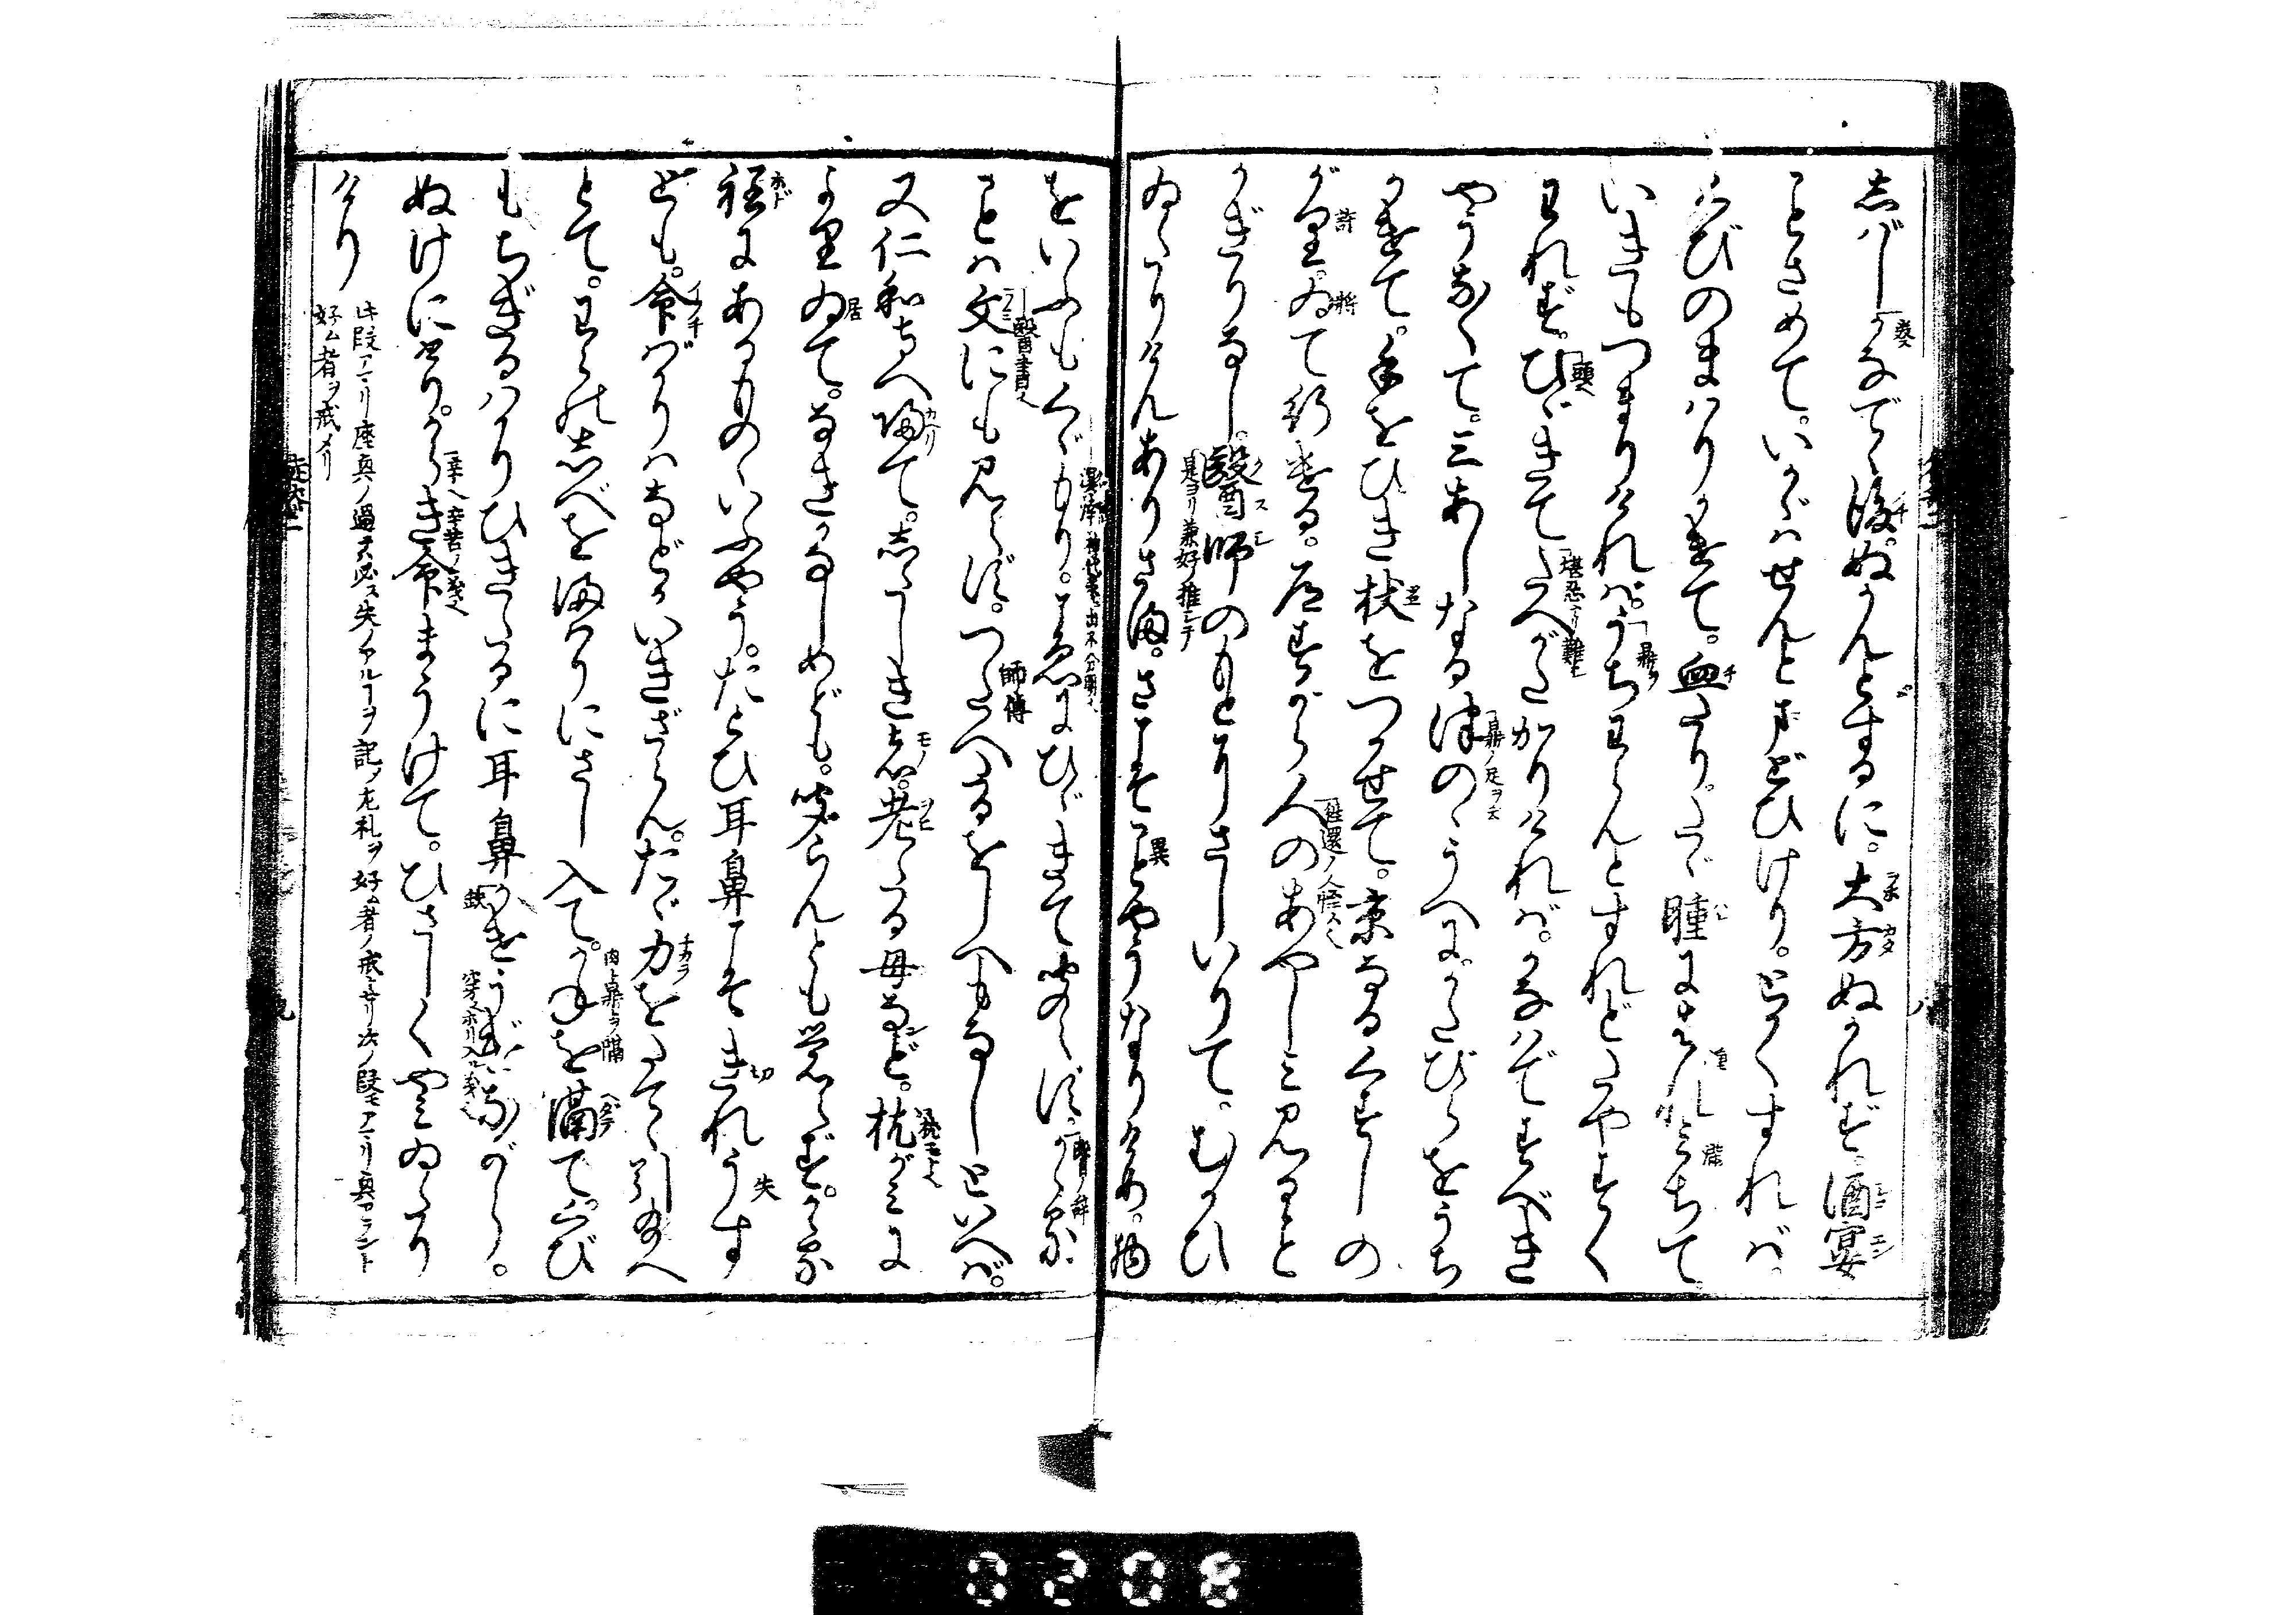 志ばしかなでゝ後。ぬかんとするに。大方ぬかれず。酒宴
ことさめて。いかゞはせんとまどひけり。とかくすれば。
くびのまはりかけて。血たり。たゞ腫にはれみちて
いきもつまりければ。うちわらんとすれどたやすく
われず。ひゞきてたへがたかりければ。かなはですべき
やうなくて。三あしなる津のゝうへに。かたびらをうち
かけて。手をひき杖をつかせて。京なるくすしの
がり。ゐて行ける。道すがら人のあやしみ見ること
かぎりなし。醫師のもとにさしいりて。むかひ
ゐたりけんありさま。さこそことやうなりけめ。物
をいふもくゞもり。こゑにひゞきて聞えず。かゝる
ことは文にも見えず。つたへるをしへもなしといへば。
又仁和寺へ帰て。志たしき者。老たる母など。枕がみに
より居て。なきかなしめども。聞らんとも覚えず。かゝる
程にあるものゝいふやう。たとひ耳鼻こそきれうす
とも。命ばかりはなどかいきざらん。たゞ力をたてゝ引給へ
とて。わらの志べをまはりにさし入て。かねを隔て。くび
もちぎるばかりひきたるに耳鼻かけうげながら。
ぬけにけり。からき命まうけて。ひさしくやみゐたり
けり
此段アマリ座興ノ過テ必ス失ノアルヿヲ記ス
好ム者ヲ戒メリ